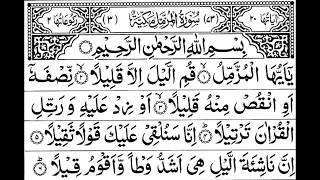 اٰیاتها ٢٠ (٧٣) سُوْرَةُ الْمُزَّمِّلِ مَكِّيَّةٌ (٣) رکوعاتها ٢
بِسْمِ اللّٰهِ الرَّحْمٰنِ الرَّحِيْمِ
يٰٓاَيُّهَا الْمُزَّمِّلُ ۙ١ قُمِ الَّيْلَ اِلَّا قَلِيْلًا ۙ٢ نِّصْفَهٗٓ
اَوِ انْقُصْ مِنْهُ قَلِيْلًا ۙ٣ اَوْ زِدْ عَلَيْهِ وَ رَتِّلِ
الْقُرْاٰنَ تَرْتِيْلًا ؕ٤ اِنَّا سَنُلْقِيْ عَلَيْكَ قَوْلًا ثَقِيْلًا ٥
اِنَّ نَاشِئَةَ الَّيْلِ هِيَ اَشَدُّ وَطْاً وَّ اَقْوَمُ قِيْلًا ؕ٦